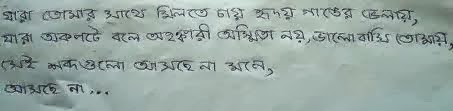 যারা তোমার সাথে মিলতে চায় হৃদয় পাতের ভেলায়,
যারা অকপটে বলে অহঙ্কারী অস্মিতা নয়, ভালোবাসি তোমায়,
সেই শব্দগুলো আসছে না মনে,
আসছে না...